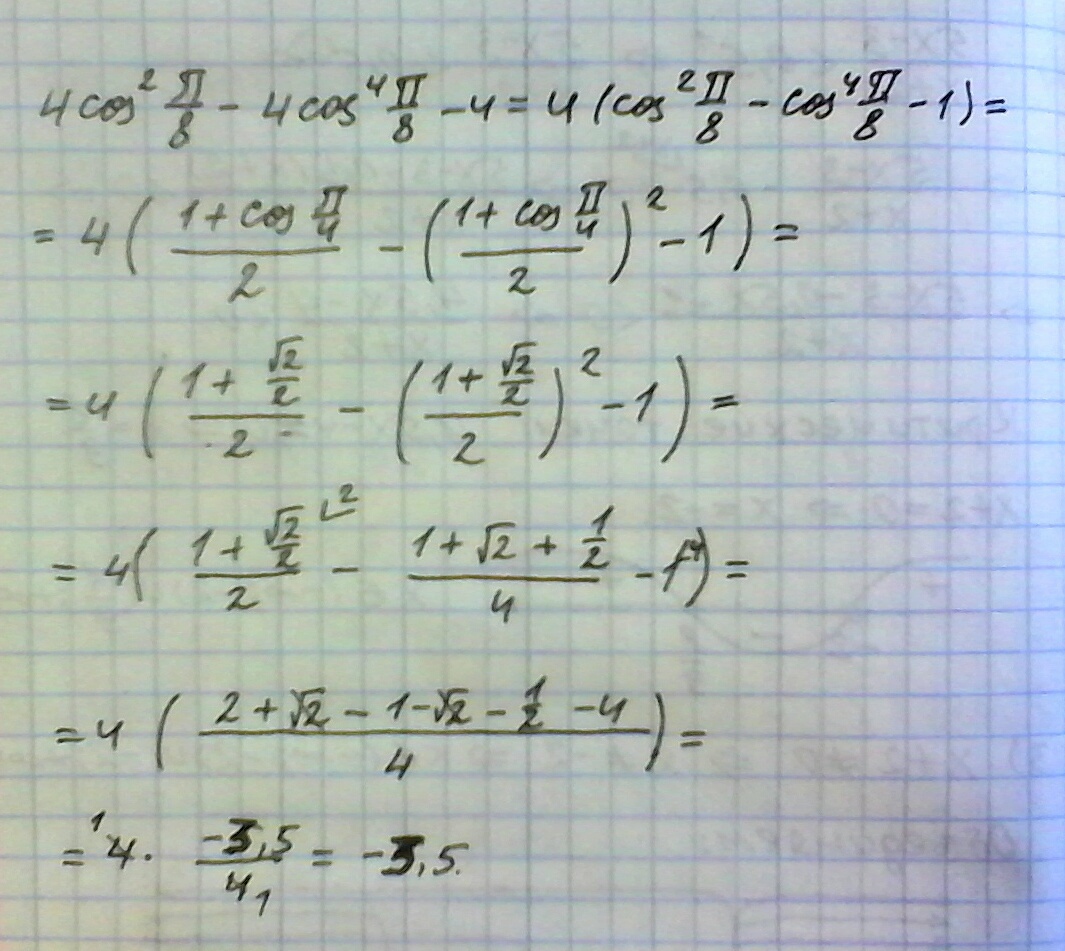 4cos²π/8 - 4cos⁴π/8 - 4 = 4(cos²π/8 - cos⁴π/8 - 1) =
= 4((1+cos π/4)/2 - ((1+cos π/4)/2)² - 1) =
= 4((1+√2/2)/2 - ((1+√2/2)/2)² - 1) =
= 4((1+√2/2)/2 ⌞2 - (1+√2+1/2)/4 - 1 ⌞4) =
= 4((2+√2-1-√2-1/2-4)/4) =
= ¹4 · -3,5/4₁ = -3,5.